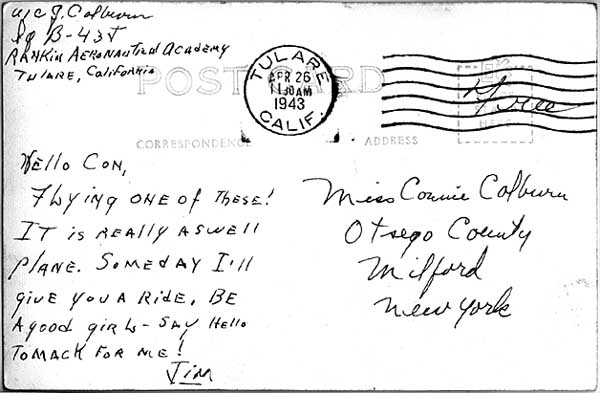 A/C J. Colburn
Sq B-43J
Rankin Aeronautical Academy
Tulare, California
POST CARD
TULARE
APR 26
11 30 AM
1943
CALIF.
Free
CORRESPONDENCE
ADDRESS
Hello Con,
Flying one of these!
It is really a swell
plane. Someday I'll
give you a ride. Be
a good girl - Say Hello
to Mack for me!
Jim
Miss Connie Colburn
Otsego County
Milford
New York